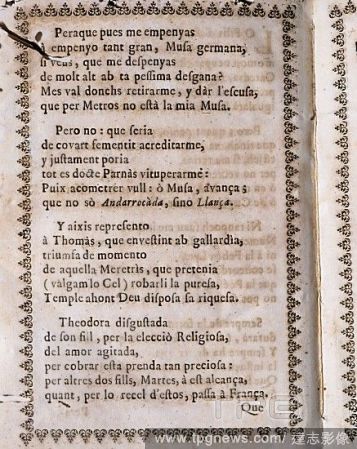 Peraque pues me empenyas
à empenyo tant gran, Musa germana,
si veus, que me despenyas
de molt alt ab ta pessima desgana?
Mes val donchs retirarme, y dàr l'escusa,
que per Metros no està la mia Musa.
Pero no: que seria
de covart fementit acreditarme,
y justament poria
tot es docte Parnàs vituperarme:
Puix acometrer vull: ò Musa, avança;
que no sò Andarrocàda, sino Llança.
Y aixis represento
à Thomàs, que envestint ab gallardìa,
triumfa de momento
de aquella Meretrìs, que pretenia
(vàlgamlo Cel) robarli la puresa,
Temple ahont Deu disposa sa riquesa.
Theodora disgustada
de son fill, per la elecciò Religiosa,
del amor agitada,
per cobrar esta prenda tan preciosa:
per altres dos fills, Martes, à est alcança,
quant, per lo recel d'estos, passa à França.
Que
www.tpgnews.com/達志影像